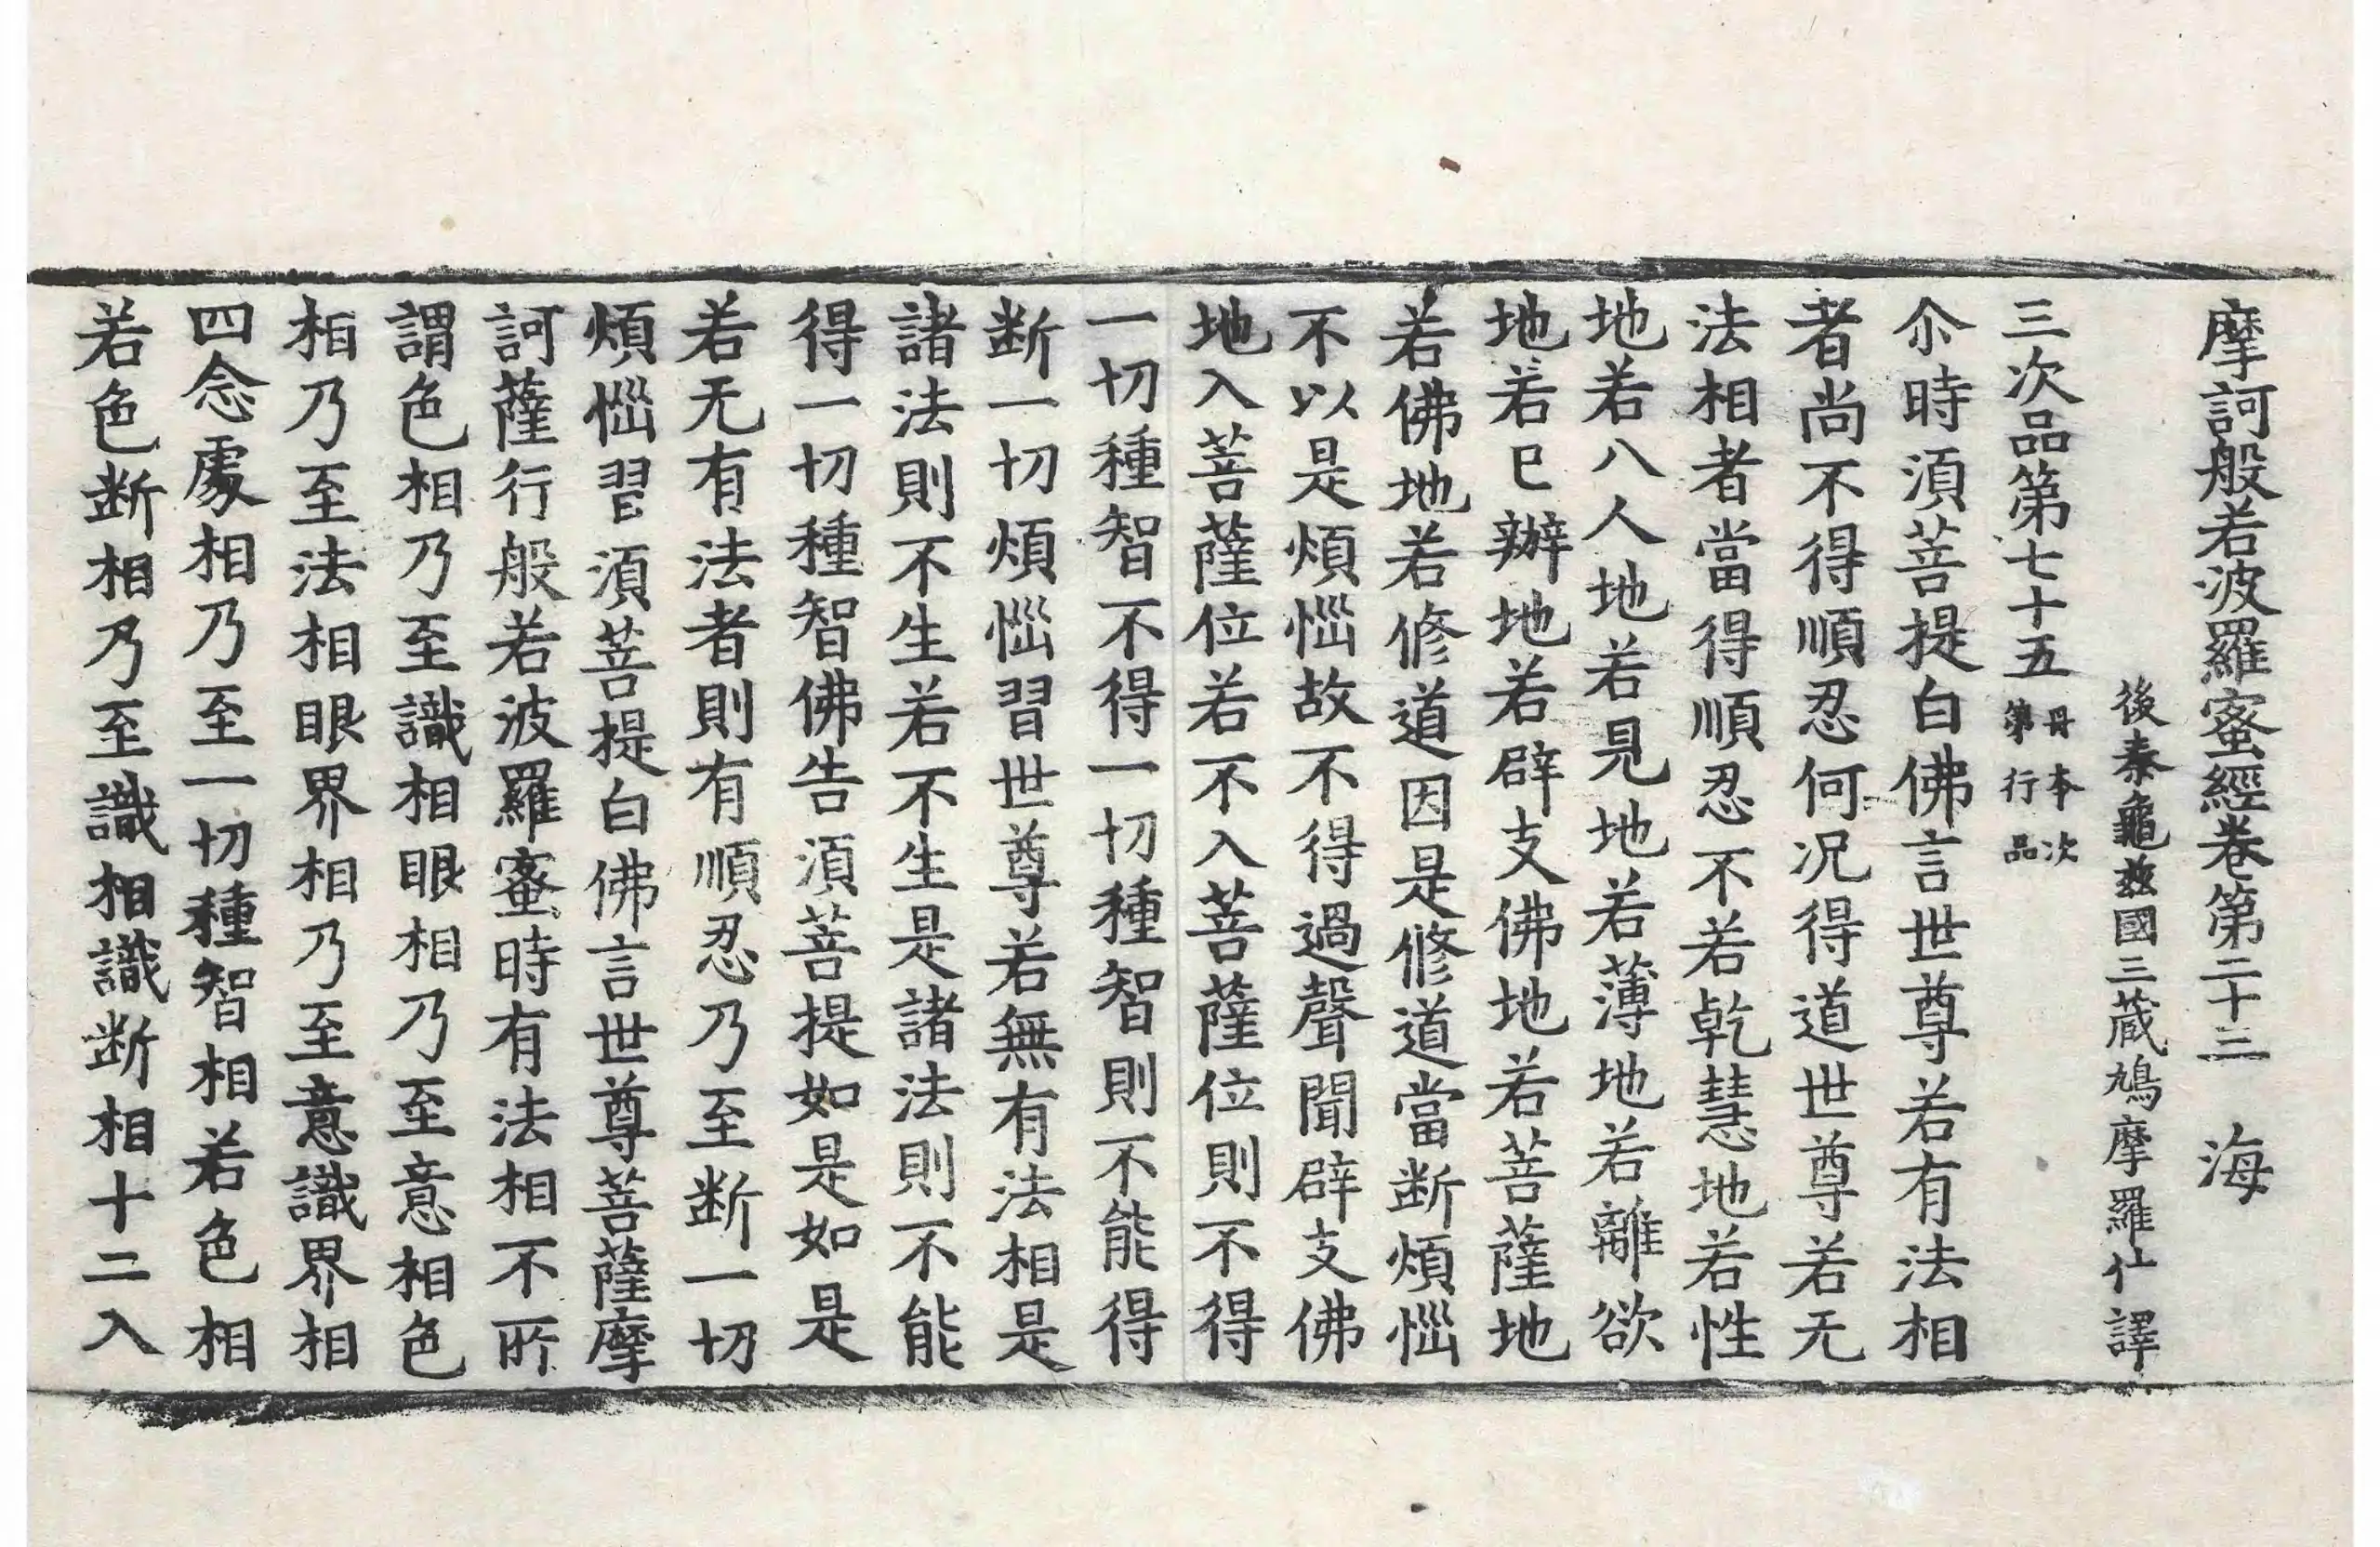 摩訶般若波羅蜜經卷第二十三　海
後秦龜茲國三藏鳩摩羅什譯
三次品第七十五丹本次第行品
尒時湏菩提白佛言世尊若有法相
者尚不得順忍何况得道世尊若无
法相者當得順忍不若乾慧地若性
地若八人地若見地若薄地若離欲
地若已辦地若辟支佛地若菩薩地
若佛地若修道因是修道當断煩惱
不以是煩惱故不得過聲聞辟支佛
地入菩薩位若不入菩薩位則不得
一切種智不得一切種智則不能得
断一切煩惱習世尊若無有法相是
諸法則不生若不生是諸法則不能
得一切種智佛告湏菩提如是如是
若无有法者則有順忍乃至断一切
煩惱習湏菩提白佛言世尊菩薩摩
訶薩行般若波羅蜜時有法相不所
謂色相乃至識相眼相乃至意相色
相乃至法相眼界相乃至意識界相
四念處相乃至一切種智相若色相
若色断相乃至識相識断相十二入